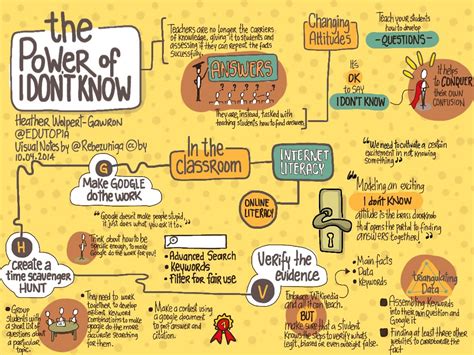 the
Power of
I DON'T KNOW
Heather Wolpert-Gawron
@EDUTOPIA
Visual Notes by @Rebezuniga @by
10.09.2014
Teachers are no longer the carriers
of knowledge, giving it to students and
assessing if they can repeat the facts
successfully.
ANSWERS
They are, instead, tasked with
teaching students how to find answers
Changing
Attitudes
Teach your students
how to develop
- QUESTIONS -
It's
OK
to SAY
I DON'T KNOW
it helps
to CONQUER
their own
CONFUSION
In the
Classroom
INTERNET
LITERACY
ONLINE
LITERACY
"We need to cultivate a certain
excitement in not knowing
something"
"Modeling an exciting
I don't KNOW
attitude is the brass doorknob
that opens a portal to finding
answers together!"
G
Make GOOGLE
do the WORK
"Google doesn't make people stupid,
it just does what you ask it to"
Think about how to be
specific enough to
Google do the work for you
• Advanced Search
• Keywords
• Filter for fair use
H
create a
time scavenger
HUNT
• Group
students
with a
short list of
questions
about a
particular
topic.
• They need to work
together to develop
combinations to make
google do the more
accurate searching
for them
• Make a contest using
a google document
to put answer and
citation.
1
Verify the
evidence
V
Embrace Wikipedia
and all it can teach.
BUT
make sure that a student
knows the steps to verify what's
legit, biased, or even left out.
• Main facts
• Data
• Keywords
triangulating
Data
• Assembling Keywords
into their own Question
and Combinations and
Google it